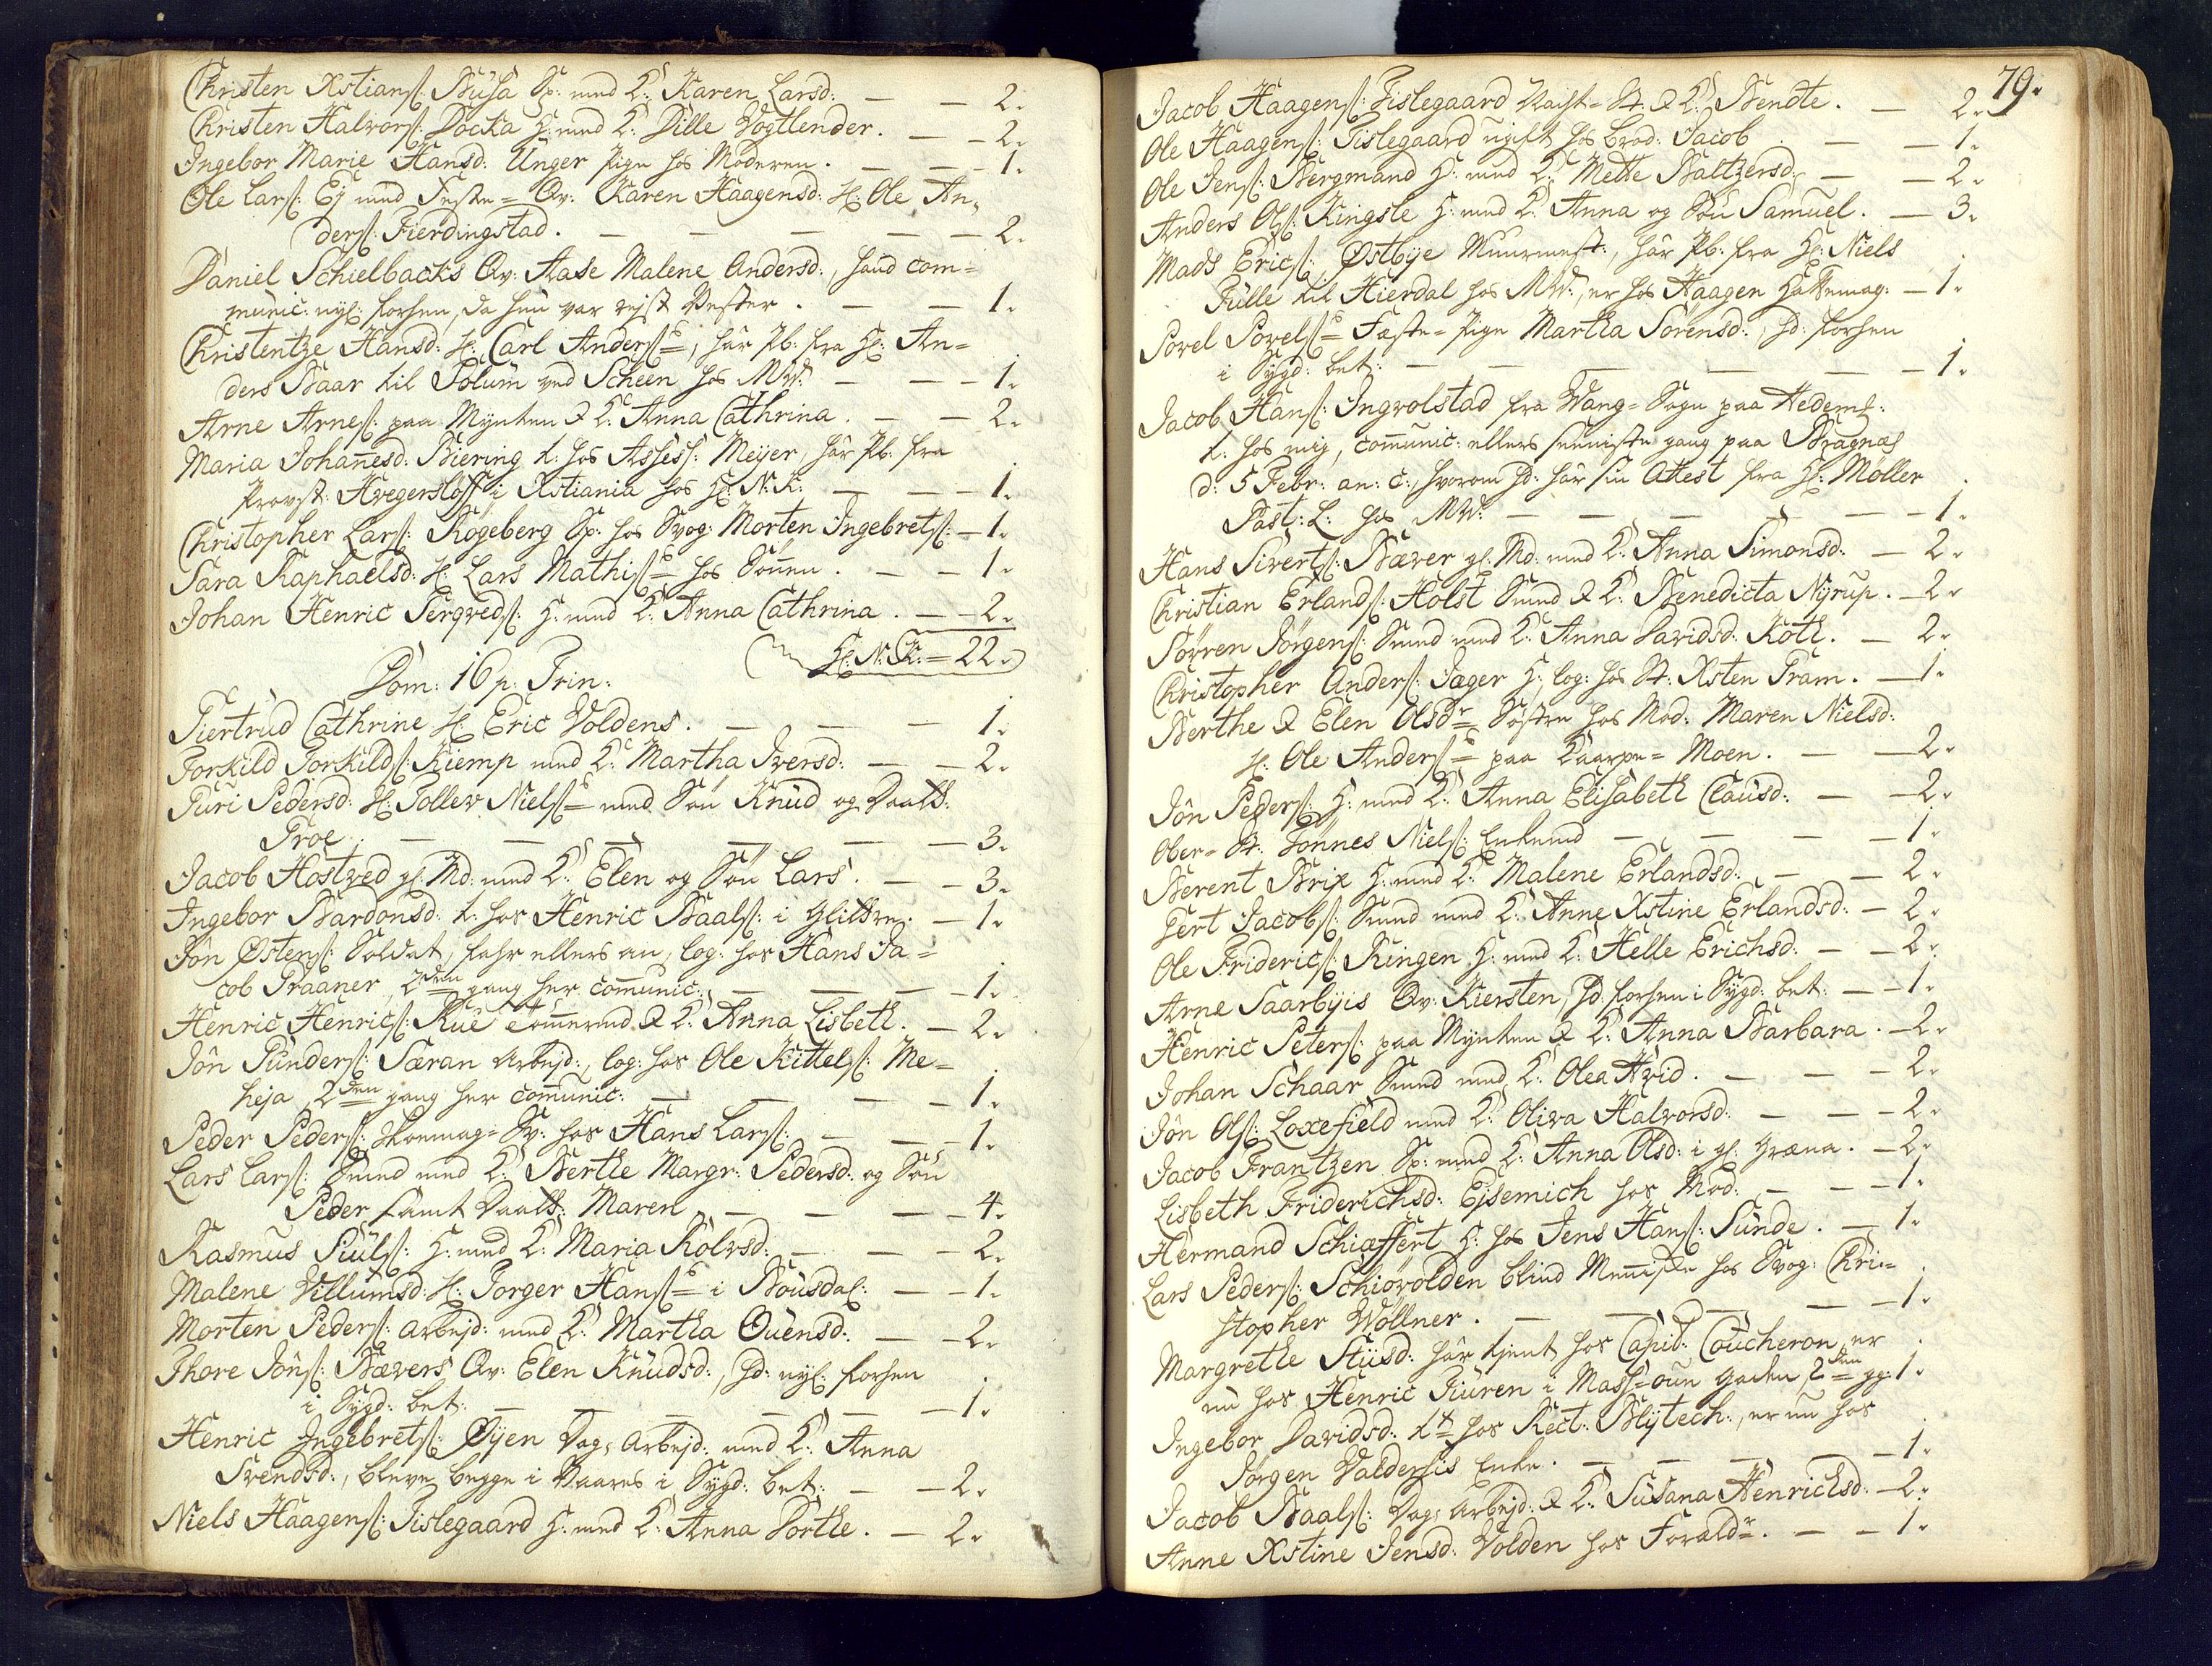 Christen Xstians: Busa Sp: med K: Karen Larsd: — — 2.
Christen Halvors: Docka H: med K: Dille Vogtlender. — — 2.
Ingebor Marie Hansd: Unger Pige hos Moderen. — — 1.
Ole Lars: Ey med Feste= Qv: Karen Haagensd: H: Ole An=
ders: Fierdingstad. — — — — — 2.
Daniel Schielbacks Qv: Aase Malene Andersd:, hand com=
munic: nyl: forhen, da hun var reist Vester. — — 1.
Christentze Hansd: H: Carl Anders:, har Pb: fra Hr: An=
ders Baar til Solum ved Scheen hos MW: — — 1.
Arne Arnes: paa Mynten & K: Anna Cathrina. — — 2.
Maria Johannesd: Biering t: hos Assess: Meyer, har Pb: fra
Provst: Hvegersløff i Xstiania hos Hr: N: K: — — 1.
Christopher Lars: Rogeberg Sp: hos Svog: Morten Ingebrets: — 1.
Sara Raphaelsd: H: Lars Mathis: hos Sønnen. — — 1.
Johan Henric Terqveds: H: med K: Anna Cathrina. — — 2.
Hr: N: K: = 22.
Dom: 16 p: Trin:
Giertrud Cathrine H: Eric Voldens. — — — 1.
Torkild Torkilds: Kiemp med K: Martha Iversd: — — 2.
Guri Pedersd: H: Tollev Niels: med Søn Knud og Daatt:
Groe. — — — — — — 3.
Jacob Hostved gl: Md: med K: Elen og Søn Lars. — — 3.
Ingebor Bardonsd: t: hos Henric Baals: i Glittre. — 1.
Jon Østens: Soldat, farer ellers an, log: hos Hans Ja=
cob Graaner, 2den gang her communic: — — — 1.
Henric Henrics: Rue Tømmermd & K: Anna Lisbeth. — 2.
Jon Gunders: Særan Arbejd:, log: hos Ole Kittels: Me=
heja, 2den gang her communic: — — — — 1.
Peder Peders: Skomag= Sv: hos Hans Lars: — — — 1.
Lars Lars: Smed med K: Berthe Margr: Pedersd: og Søn
Peder samt Daatt: Maren — — — — 4.
Rasmus Juuls: H: med K: Maria Rolvsd: — — — 2.
Malene Villumsd: H: Torger Hans: i Bousdal: — — 1.
Morten Peders: Arbejd: med K: Martha Ouensd: — — 2.
Thore Jons: Bævers Qv: Elen Knudsd:, hd: nyl: forhen
i Sygd: bet: — — — — — — 1.
Henric Ingebrets: Øyen Dag= Arbejd: med K: Anna
Svendsd:, bleve begge i Vaares i Sygd: bet: — — 2.
Niels Haagens: Tislegaard H: med K: Anna Dorthe. — 2.
79.
Jacob Haagens: Tislegaard Vagt= St: & K: Bendte. — 2.
Ole Haagens: Tislegaard ugift hos Brod: Jacob. — — 1.
Ole Jens: Bergmand H: med K: Mette Baltzersd: — — 2.
Anders Ols: Kingsle H: med K: Anna og Søn Samuel. — 3.
Mads Erics: Østbye Muurmest:, har Pb: fra Hr: Niels
Fülle til Hierdal hos MW:, er hos Haagen Hattemag: — 1.
Povel Povels: Fæste= Pige Martha Sorensd:, hd: forhen
i Sygd: bet: — — — — — — 1.
Jacob Hans: Ingvolstad fra Wang= Sogn paa Hedem:
t: hos mig, communic: ellers seeniste gang paa Bragnæs
d: 5 Febr: an: c:, hvorom hd: har sin Attest fra Hr: Møller
Past: L: hos MW: — — — — — 1.
Hans Siverts: Bæver gl: Md: med K: Anna Simonsd: — 2.
Christian Erlands: Holst Smed & K: Benedicta Nyrup. — 2.
Sørren Jørgens: Smed med K: Anna Davidsd: Koth. — 2.
Christopher Anders: Jæger H:, log: hos St: Xsten Gram. — 1.
Berthe & Elen Olsdr Søstre hos Mod: Maren Nielsd:
H: Ole Anders: paa Kaarpe= Moen. — — 2.
Jon Peders: H: med K: Anna Elisabeth Clausd: — — 2.
Ober= St: Tønnes Niels: Enkemd — — — — 1.
Berent Brix H: med K: Malene Erlandsd: — — 2.
Gert Jacobs: Smed med K: Anne Xstine Erlandsd: — 2.
Ole Friderics: Ringen H: med K: Helle Erichsd: — — 2.
Arne Saarbyis Qv: Kiersten, hd: forhen i Sygd: bet: — — 1.
Henric Peters: paa Mynten & K: Anna Barbara. — 2.
Johan Schaar Smed med K: Olea Hvid. — — — 2.
Jon Ols: Loxefield med K: Oliva Halvorsd: — — — 2.
Jacob Frantzen Sp: med K: Anna Olsd: i gl: Græna. — 2.
Lisbeth Friderichsd: Ejsemich hos Mod: — — — 1.
Hermand Schiæffert H: hos Jens Hans: Sunde. — 1.
Lars Peders: Schiøvolden blind Menniske hos Svog: Chri=
stopher Wøllner. — — — — — 1.
Margrethe Stiisd: har tjent hos Capit: Coucheron, er
nu hos Henric Giuren i Mass= oun Gaden 2den gg: 1.
Ingebor Davidsd: t: hos Rect: Blytech:, er nu hos
Jørgen Valdersis Enke. — — — — 1.
Jacob Baals: Dag= Arbejd: & K: Susana Henrichsd: — 2.
Anne Xstine Jensd: Volden hos Foræld: — — 1.